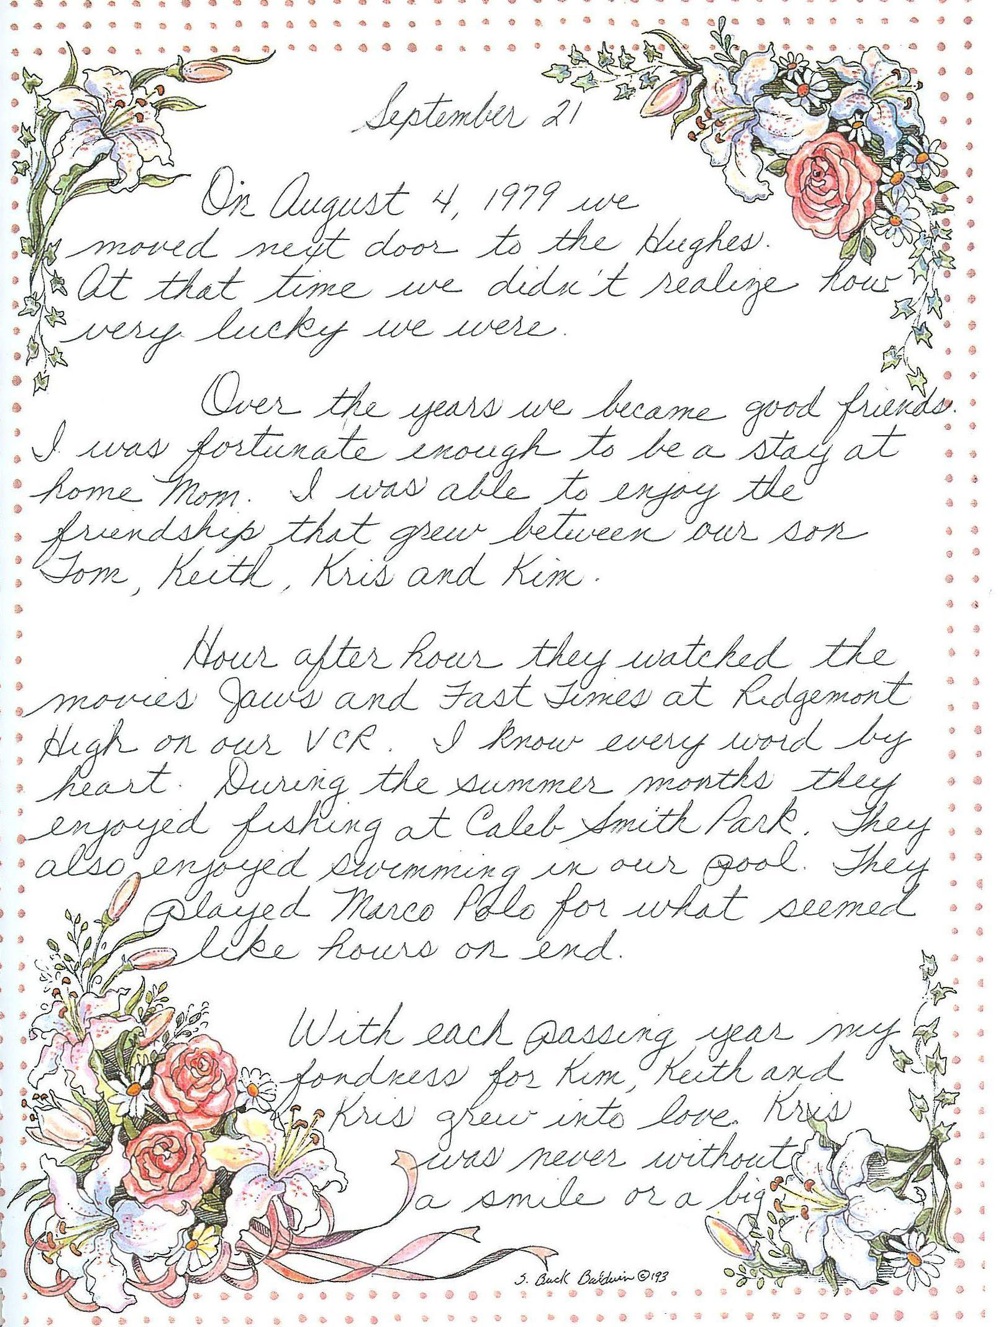 September 21
On August 4, 1979 we
moved next door to the Hughes.
At that time we didn't realize how
very lucky we were.
Over the years we became good friends.
I was fortunate enough to be a stay at
home Mom. I was able to enjoy the
friendship that grew between our son
Tom, Keith, Kris and Kim.
Hour after hour they watched the
movies Jaws and Fast Times at Ridgemont
High on our VCR. I know every word by
heart. During the summer months they
enjoyed fishing at Caleb Smith Park. They
also enjoyed swimming in our pool. They
played Marco Polo for what seemed
like hours on end.
With each passing year my
fondness for Kim, Keith and
Kris grew into love. Kris
was never without
a smile or a big
S. Buck Baldwin ©'93